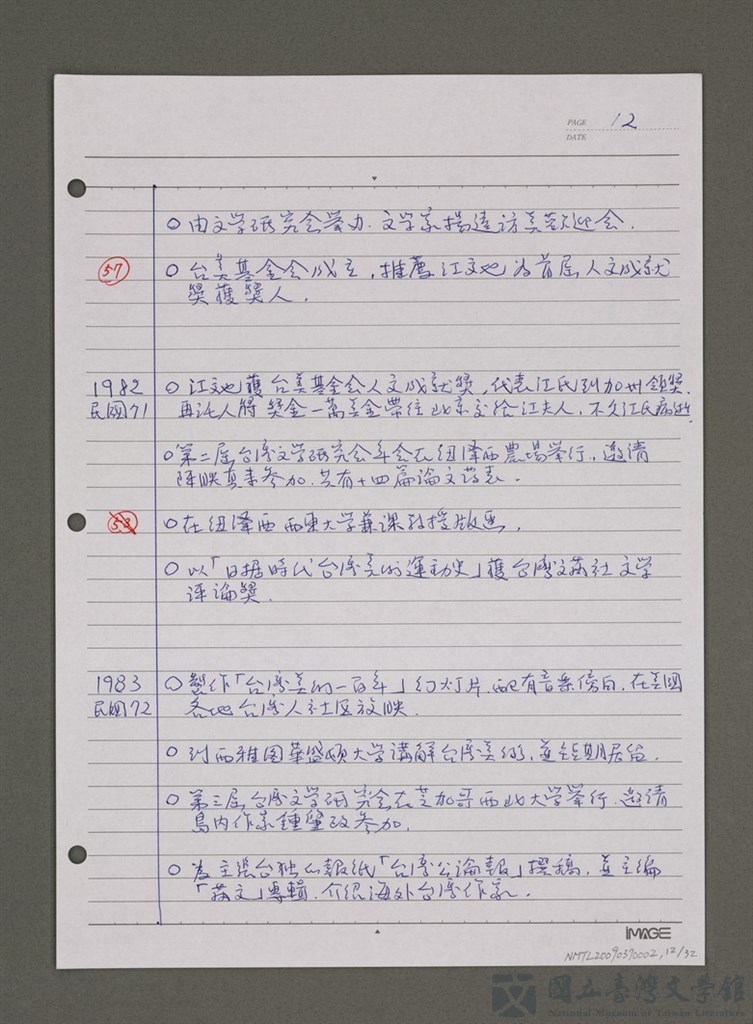 PAGE 12
DATE
○ 由文学研究会举办. 文学家楊逵訪美歓迎会.
57 ○ 台美基金会成立, 推薦江文也為首屆人文成就
獎獲獎人.
1982 ○ 江文也獲台美基金会人文成就獎, 代表江氏到加州領獎.
民國71 再託人將獎金一萬美金帶往北京交給江夫人, 不久江氏病逝.
○ 第二屆台湾文学研究会年会在纽泽西農場举行, 邀請
陳映真来參加. 共有十四篇論文發表.
58 ○ 在纽泽西西東大学兼课教授版画.
○ 以「日据時代台湾美術運動史」獲台湾文芸社文学
评論獎.
1983 ○ 製作「台湾美術一百年」幻灯片, 配有音楽傍白, 在美國
民國72 各地台湾人社区放映.
○ 到西雅图華盛頓大学講解台湾美術, 並短期居留.
○ 第三屆台湾文学研究会在芝加哥西北大学举行. 邀請
島内作家鍾肇政參加.
○ 為主張台独的報紙「台湾公論報」撰稿, 並主編
「芸文」專輯. 介紹海外台湾作家.
IMAGE
NMTL20090370002, 12/32
國立臺灣文學館
National Museum of Taiwan Literature